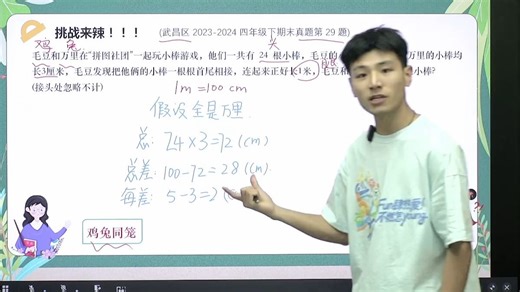 挑战来辣！！！ (武昌区 2023-2024 四年级下期末真题第 29 题)
鸡 兔 头
毛豆和万里在"拼图社团"一起玩小棒游戏，他们一共有 24 根小棒，毛豆的 万里的小棒均
长3厘米，毛豆发现把他俩的小棒一根根首尾相接，连起来正好长1米，毛豆和 小棒？
(接头处忽略不计) 1m=100cm
假设全是万里
总: 24×3=72(cm)
总差: 100-72=28(cm)
每差: 5-3=2
鸡兔同笼